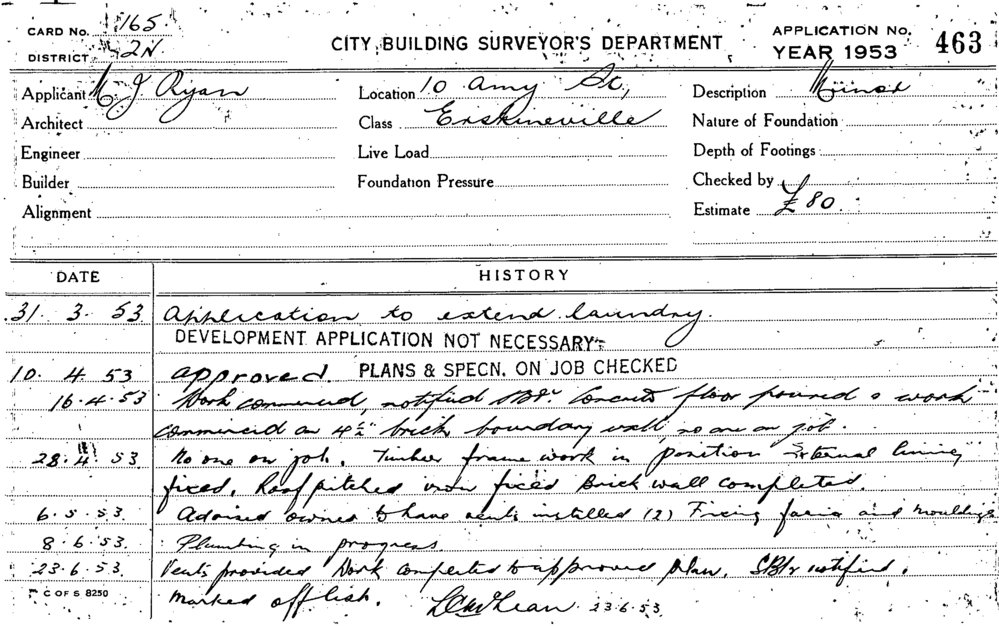 CARD No. 165
DISTRICT 2N
CITY BUILDING SURVEYOR'S DEPARTMENT
APPLICATION No. 463
YEAR 1953
Applicant M J Ryan
Location 10 Amy St,
Description Minor
Architect
Class Erskineville
Nature of Foundation
Engineer
Live Load
Depth of Footings
Builder
Foundation Pressure
Checked by
Alignment
Estimate £80
DATE HISTORY
31. 3. 53 Application to extend laundry.
DEVELOPMENT APPLICATION NOT NECESSARY
10. 4 53 approved. PLANS & SPECN. ON JOB CHECKED
16.4.53 Work commenced, notified Concrete floor poured & work
commenced on 4½" brick boundary wall, no one on job.
28.4.53 No one on job. Timber frame work in position External lining
fixed. Roof pitched iron fixed Brick wall completed.
6.5.53. Advised owner to have vents installed (2) Fixing facia and mouldings
8.6.53. Plumbing in progress.
23.6.53. Vents provided Work completed to approved plan. notified.
Marked off list. 23.6.53
C OF S 8250